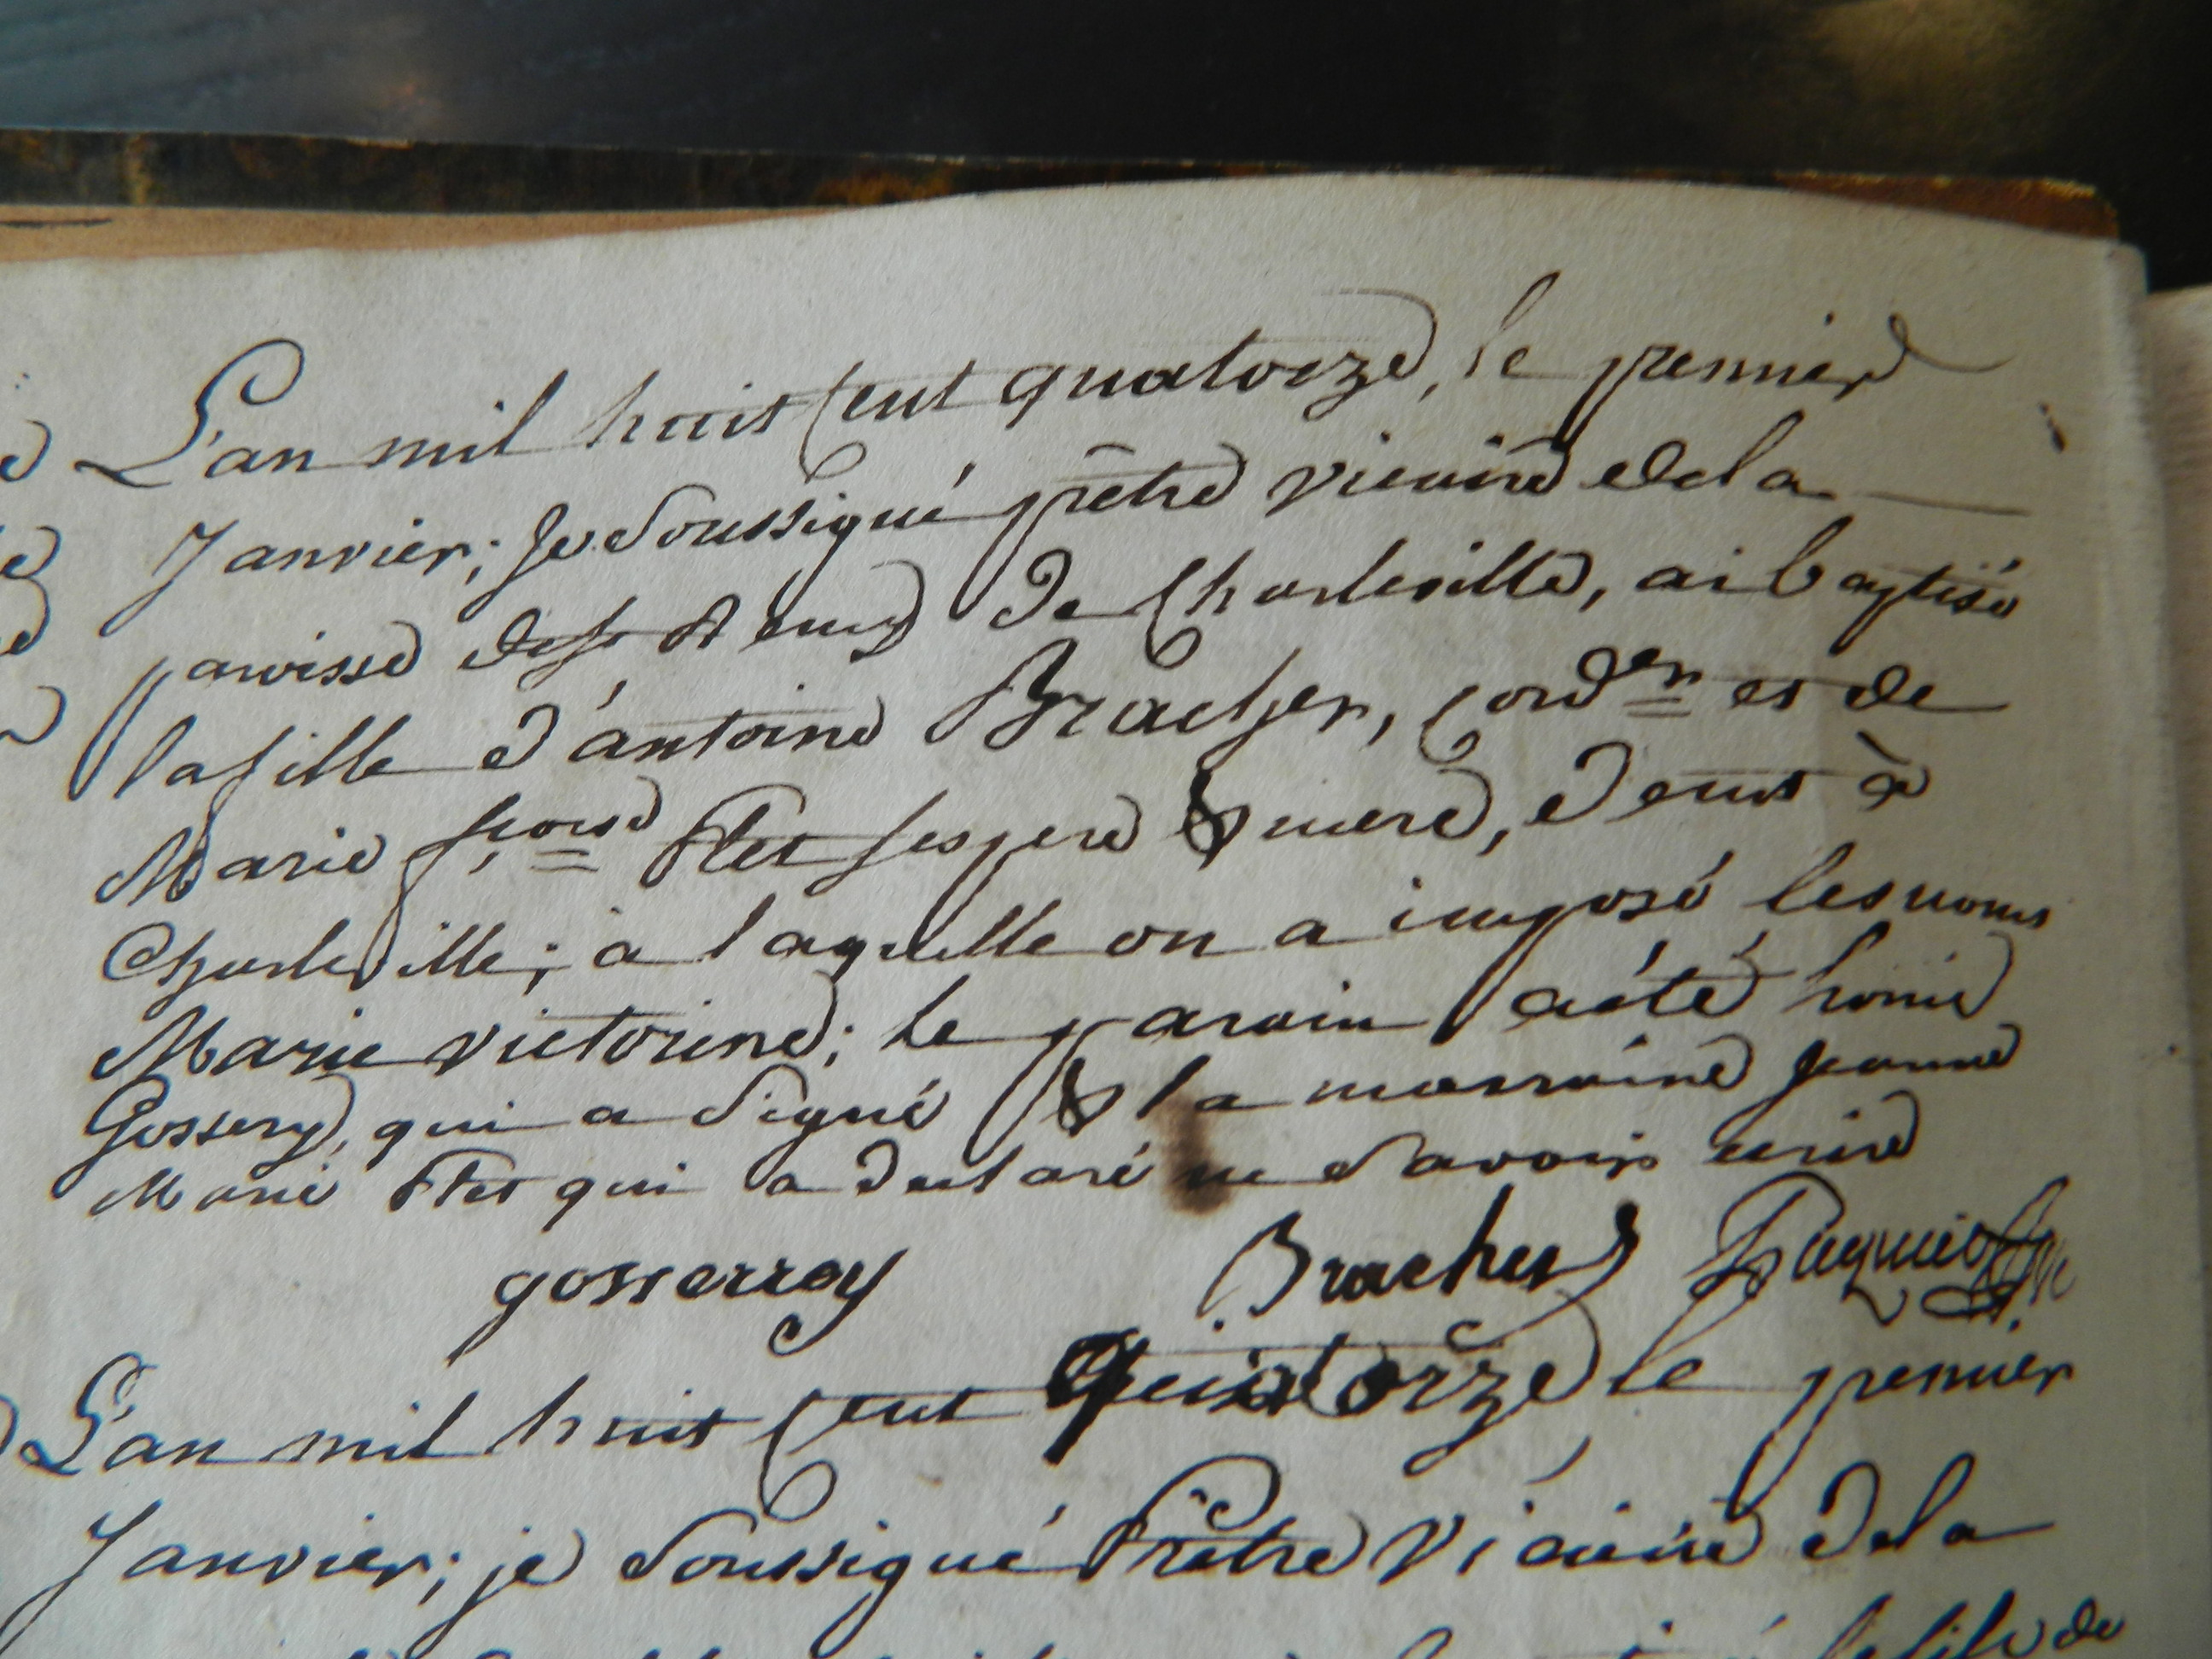 L'an mil huit Cent quatorze, le premier
Janvier; Je Soussigné prêtre vicaire de la
paroisse de st Remy de Charleville, ai baptisé
la fille d'antoine Bracher, Cord.er et de
Marie fçoise ses pere & mere, demt à
Charleville; à laquelle on a imposé les noms
Marie victorine; le parain a été
Gossery, qui a Signé & la marraine jeanne
Marie qui a declaré ne Savoir ecrire
gosserroy Bracher Paquier
L'an mil huit Cent Quatorze le premier
Janvier; je Soussigné Prêtre Vicaire de la
le fils de